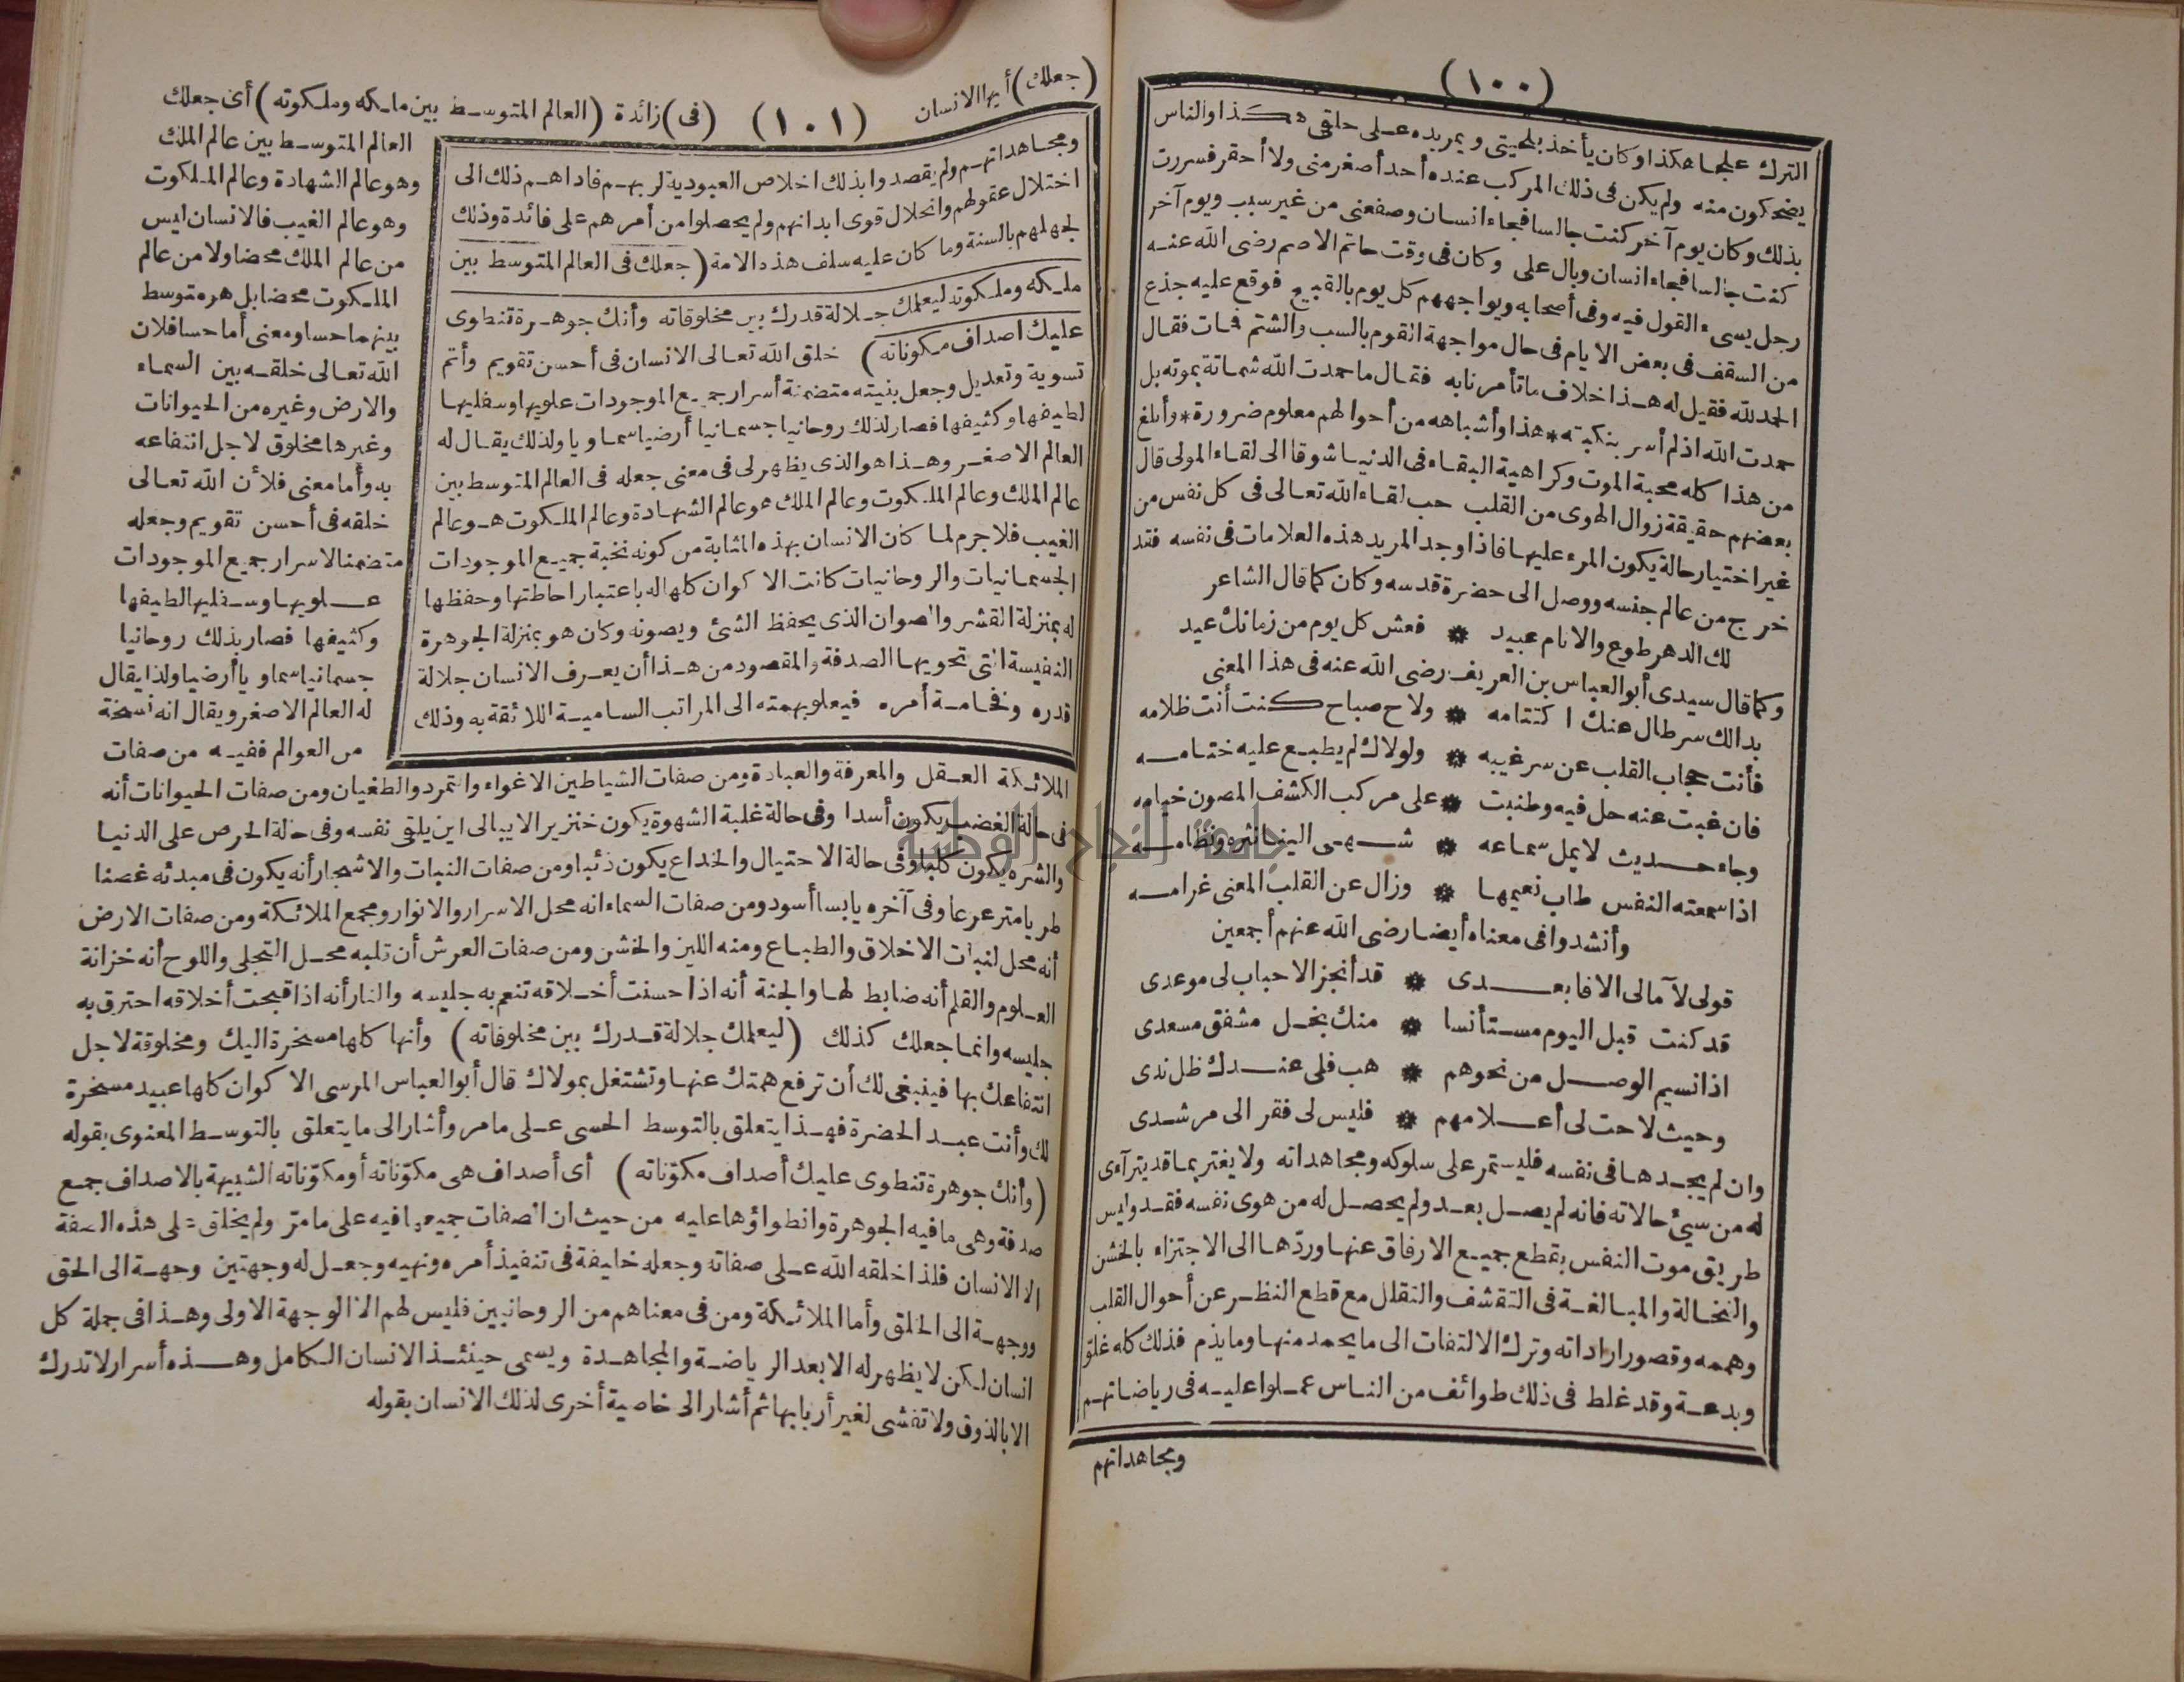 (١٠٠)
الترك علجا هكذا وكان يأخذ بلحيتى ويمر يده على حلقى هكذا والناس
يضحكون منه ولم يكن فى ذلك المركب عنده أحد أصغر منى ولا أحقر فسررت
بذلك وكان يوم آخر كنت جالسا فجاء انسان وصفعنى من غير سبب ويوم آخر
كنت جالسا فجاء انسان وبال على وكان فى وقت حاتم الاصم رضى الله عنه
رجل يسىء القول فيه وفى أصحابه ويواجههم كل يوم بالقبيح فوقع عليه جذع
من السقف فى بعض الايام فى حال مواجهة القوم بالسب والشتم فمات فقال
الحمد لله فقيل له هذا خلاف ما تأمرنا به فقال ما حمدت الله شماتة بموته بل
حمدت الله اذ لم أسر بنكبته * هذا وأشباهه من أحوالهم معلوم ضرورة * وأبلغ
من هذا كله محبة الموت وكراهية البقاء فى الدنيا شوقا الى لقاء المولى قال
بعضهم حقيقة زوال الهوى من القلب حب لقاء الله تعالى فى كل نفس من
غير اختيار حالة يكون المرء عليها فاذا وجد المريد هذه العلامات فى نفسه فقد
خرج من عالم جنسه ووصل الى حضرة قدسه وكان كما قال الشاعر
لك الدهر طوع والانام عبيد * فعش كل يوم من زمانك عيد
وكما قال سيدى أبو العباس بن العريف رضى الله عنه فى هذا المعنى
بدا لك سر طال عنك اكتتامه * ولاح صباح كنت أنت ظلامه
فأنت حجاب القلب عن سر غيبه * ولولاك لم يطبع عليه ختامه
فان غبت عنه حل فيه وطنبت * على مركب الكشف المصون خيامه
وجاء حديث لا يمل سماعه * شهى الينا نثره ونظامه
اذا سمعته النفس طاب نعيمها * وزال عن القلب المعنى غرامه
وأنشدوا فى معناه أيضا رضى الله عنهم أجمعين
قولى لآمالى الا فابعدى * قد أنجز الاحباب لى موعدى
قد كنت قبل اليوم مستأنسا * منك بخل مشفق مسعدى
اذا نسيم الوصل من نحوهم * هب فلى عندك ظل ندى
وحيث لاحت لى أعلامهم * فليس لى فقر الى مرشدى
وان لم يجدها فى نفسه فليستمر على سلوكه ومجاهداته ولا يغتر بما قد يترآءى
له من سيئ حالاته فانه لم يصل بعد ولم يحصل له من هوى نفسه فقد وليس
طريق موت النفس بقطع جميع الارفاق عنها وردها الى الاجتزاء بالخشن
والنخالة والمبالغة فى التقشف والتقلل مع قطع النظر عن أحوال القلب
وهممه وقصور اراداته وترك الالتفات الى ما يحمد منها وما يذم فذلك كله غلو
وبدعة وقد غلط فى ذلك طوائف من الناس عملوا عليه فى رياضاتهم
ومجاهداتهم
(جعلك) أيها الانسان (١٠١) (فى) زائدة (العالم المتوسط بين ملكه وملكوته) أى جعلك
ومجاهداتهم ولم يقصدوا بذلك اخلاص العبودية لربهم فاداهم ذلك الى
اختلال عقولهم وانحلال قوى ابدانهم ولم يحصلوا من أمرهم على فائدة وذلك
لجهلهم بالسنة وما كان عليه سلف هذه الامة (جعلك فى العالم المتوسط بين
ملكه وملكوته ليعلمك جلالة قدرك بين مخلوقاته وأنك جوهرة تنطوى
عليك اصداف مكوناته) خلق الله تعالى الانسان فى أحسن تقويم وأتم
تسوية وتعديل وجعل بنيته متضمنة أسرار جميع الموجودات علويها وسفليها
لطيفها وكثيفها فصار لذلك روحانيا جسمانيا أرضيا سماويا ولذلك يقال له
العالم الاصغر وهذا هو الذى يظهر لى فى معنى جعله فى العالم المتوسط بين
عالم الملك وعالم الملكوت وعالم الملك هو عالم الشهادة وعالم الملكوت هو عالم
الغيب فلا جرم لما كان الانسان بهذه المثابة من كونه نخبة جميع الموجودات
الجسمانيات والروحانيات كانت الاكوان كلها له باعتبار احاطتها وحفظها
له بمنزلة القشر والصوان الذى يحفظ الشئ ويصونه وكان هو بمنزلة الجوهرة
النفيسة التى تحويها الصدفة والمقصود من هذا أن يعرف الانسان جلالة
قدره وفخامة أمره فيعلو بهمته الى المراتب السامية اللائقة به وذلك
العالم المتوسط بين عالم الملك
وهو عالم الشهادة وعالم الملكوت
وهو عالم الغيب فالانسان ليس
من عالم الملك محضا ولا من عالم
الملكوت محضا بل هو متوسط
بينهما حسا ومعنى أما حسا فلان
الله تعالى خلقه بين السماء
والارض وغيره من الحيوانات
وغيرها مخلوق لاجل انتفاعه
به وأما معنى فلأن الله تعالى
خلقه فى أحسن تقويم وجعله
متضمنا لاسرار جميع الموجودات
علويها وسفليها لطيفها
وكثيفها فصار بذلك روحانيا
جسمانيا سماويا أرضيا ولذا يقال
له العالم الاصغر ويقال انه نسخة
من العوالم ففيه من صفات
الملائكة العقل والمعرفة والعبادة ومن صفات الشياطين الاغواء والتمرد والطغيان ومن صفات الحيوانات أنه
فى حالة الغضب يكون أسدا وفى حالة غلبة الشهوة يكون خنزيرا لا يبالى اين يلقى نفسه وفى حالة الحرص على الدنيا
والشره يكون كلبا وفى حالة الاحتيال والخداع يكون ذئبا ومن صفات النبات والاشجار أنه يكون فى مبدئه غصنا
طريا مترعرعا وفى آخره يابسا أسود ومن صفات السماء انه محل الاسرار والانوار ومجمع الملائكة ومن صفات الارض
أنه محل لنبات الاخلاق والطباع ومنه اللين والخشن ومن صفات العرش أن قلبه محل التجلى واللوح أنه خزانة
العلوم والقلم أنه ضابط لها والجنة أنه اذا حسنت أخلاقه تنعم به جليسه والنار أنه اذا قبحت أخلاقه احترق به
جليسه وانما جعلك كذلك (ليعلمك جلالة قدرك بين مخلوقاته) وأنها كلها مسخرة اليك ومخلوقة لاجل
انتفاعك بها فينبغى لك أن ترفع همتك عنها وتشتغل بمولاك قال أبو العباس المرسى الاكوان كلها عبيد مسخرة
لك وأنت عبد الحضرة فهذا يتعلق بالتوسط الحسى على ما مر وأشار الى ما يتعلق بالتوسط المعنوى بقوله
(وأنك جوهرة تنطوى عليك أصداف مكوّناته) أى أصداف هى مكوّناته أو مكوّناته الشبيهة بالاصداف جمع
صدفة وهى ما فيه الجوهرة وانطواؤها عليه من حيث ان الصفات جميعها فيه على ما مرّ ولم يخلق على هذه الصفة
الا الانسان فلذا خلقه الله على صفاته وجعله خليفة فى تنفيذ أمره ونهيه وجعل له وجهتين وجهة الى الحق
ووجهة الى الخلق وأما الملائكة ومن فى معناهم من الروحانيين فليس لهم الا الوجهة الاولى وهذا فى جملة كل
انسان لكن لا يظهر له الا بعد الرياضة والمجاهدة ويسمى حينئذ الانسان الكامل وهذه أسرار لا تدرك
الا بالذوق ولا تفشى لغير أربابها ثم أشار الى خاصية أخرى لذلك الانسان بقوله
جامعة النجاح الوطنية